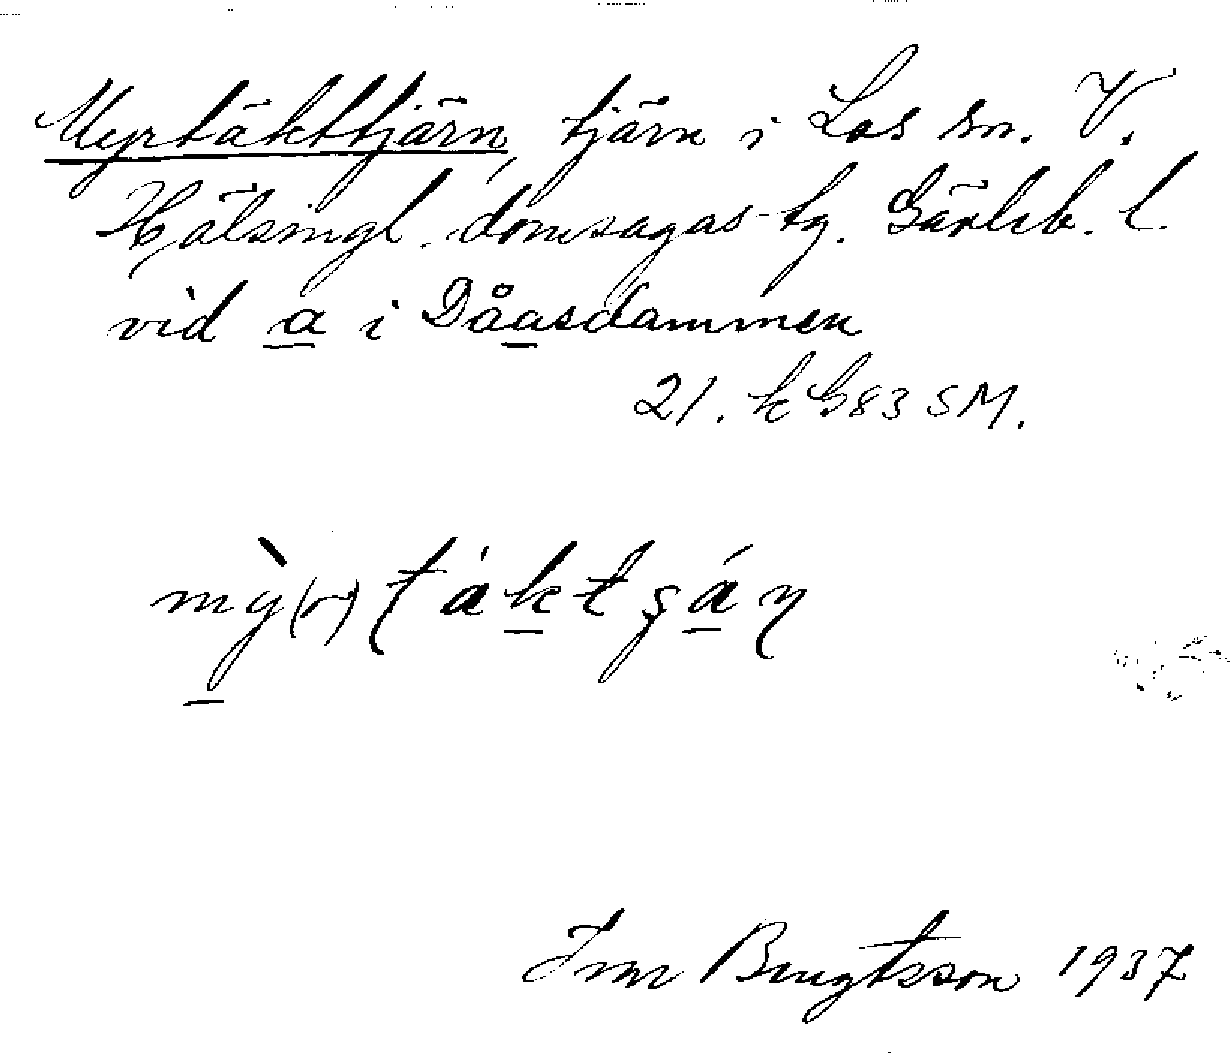 Myrtäkttjärn, tjärn i Los sn. V.
Hälsingl. domsagas tg. Gävleb. l.
vid a i Dåasdammen
21. k G83 SM.
mỳ(r)táktşáṇ
Ivar Bengtsson 1937